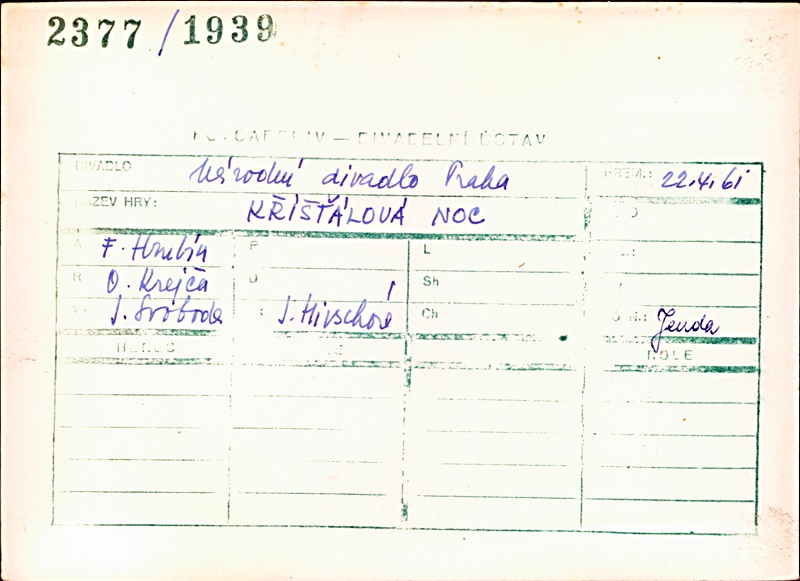 2377/1939
DIVADELNÍ ÚSTAV
DIVADLO Národní divadlo Praha 22.4.61
NÁZEV HRY: KŘIŠŤÁLOVÁ NOC
A F. Hrubín P L
R O. Krejča Sh
J. Svoboda J. Hirschová Ch Jenda
HEREC ROLE